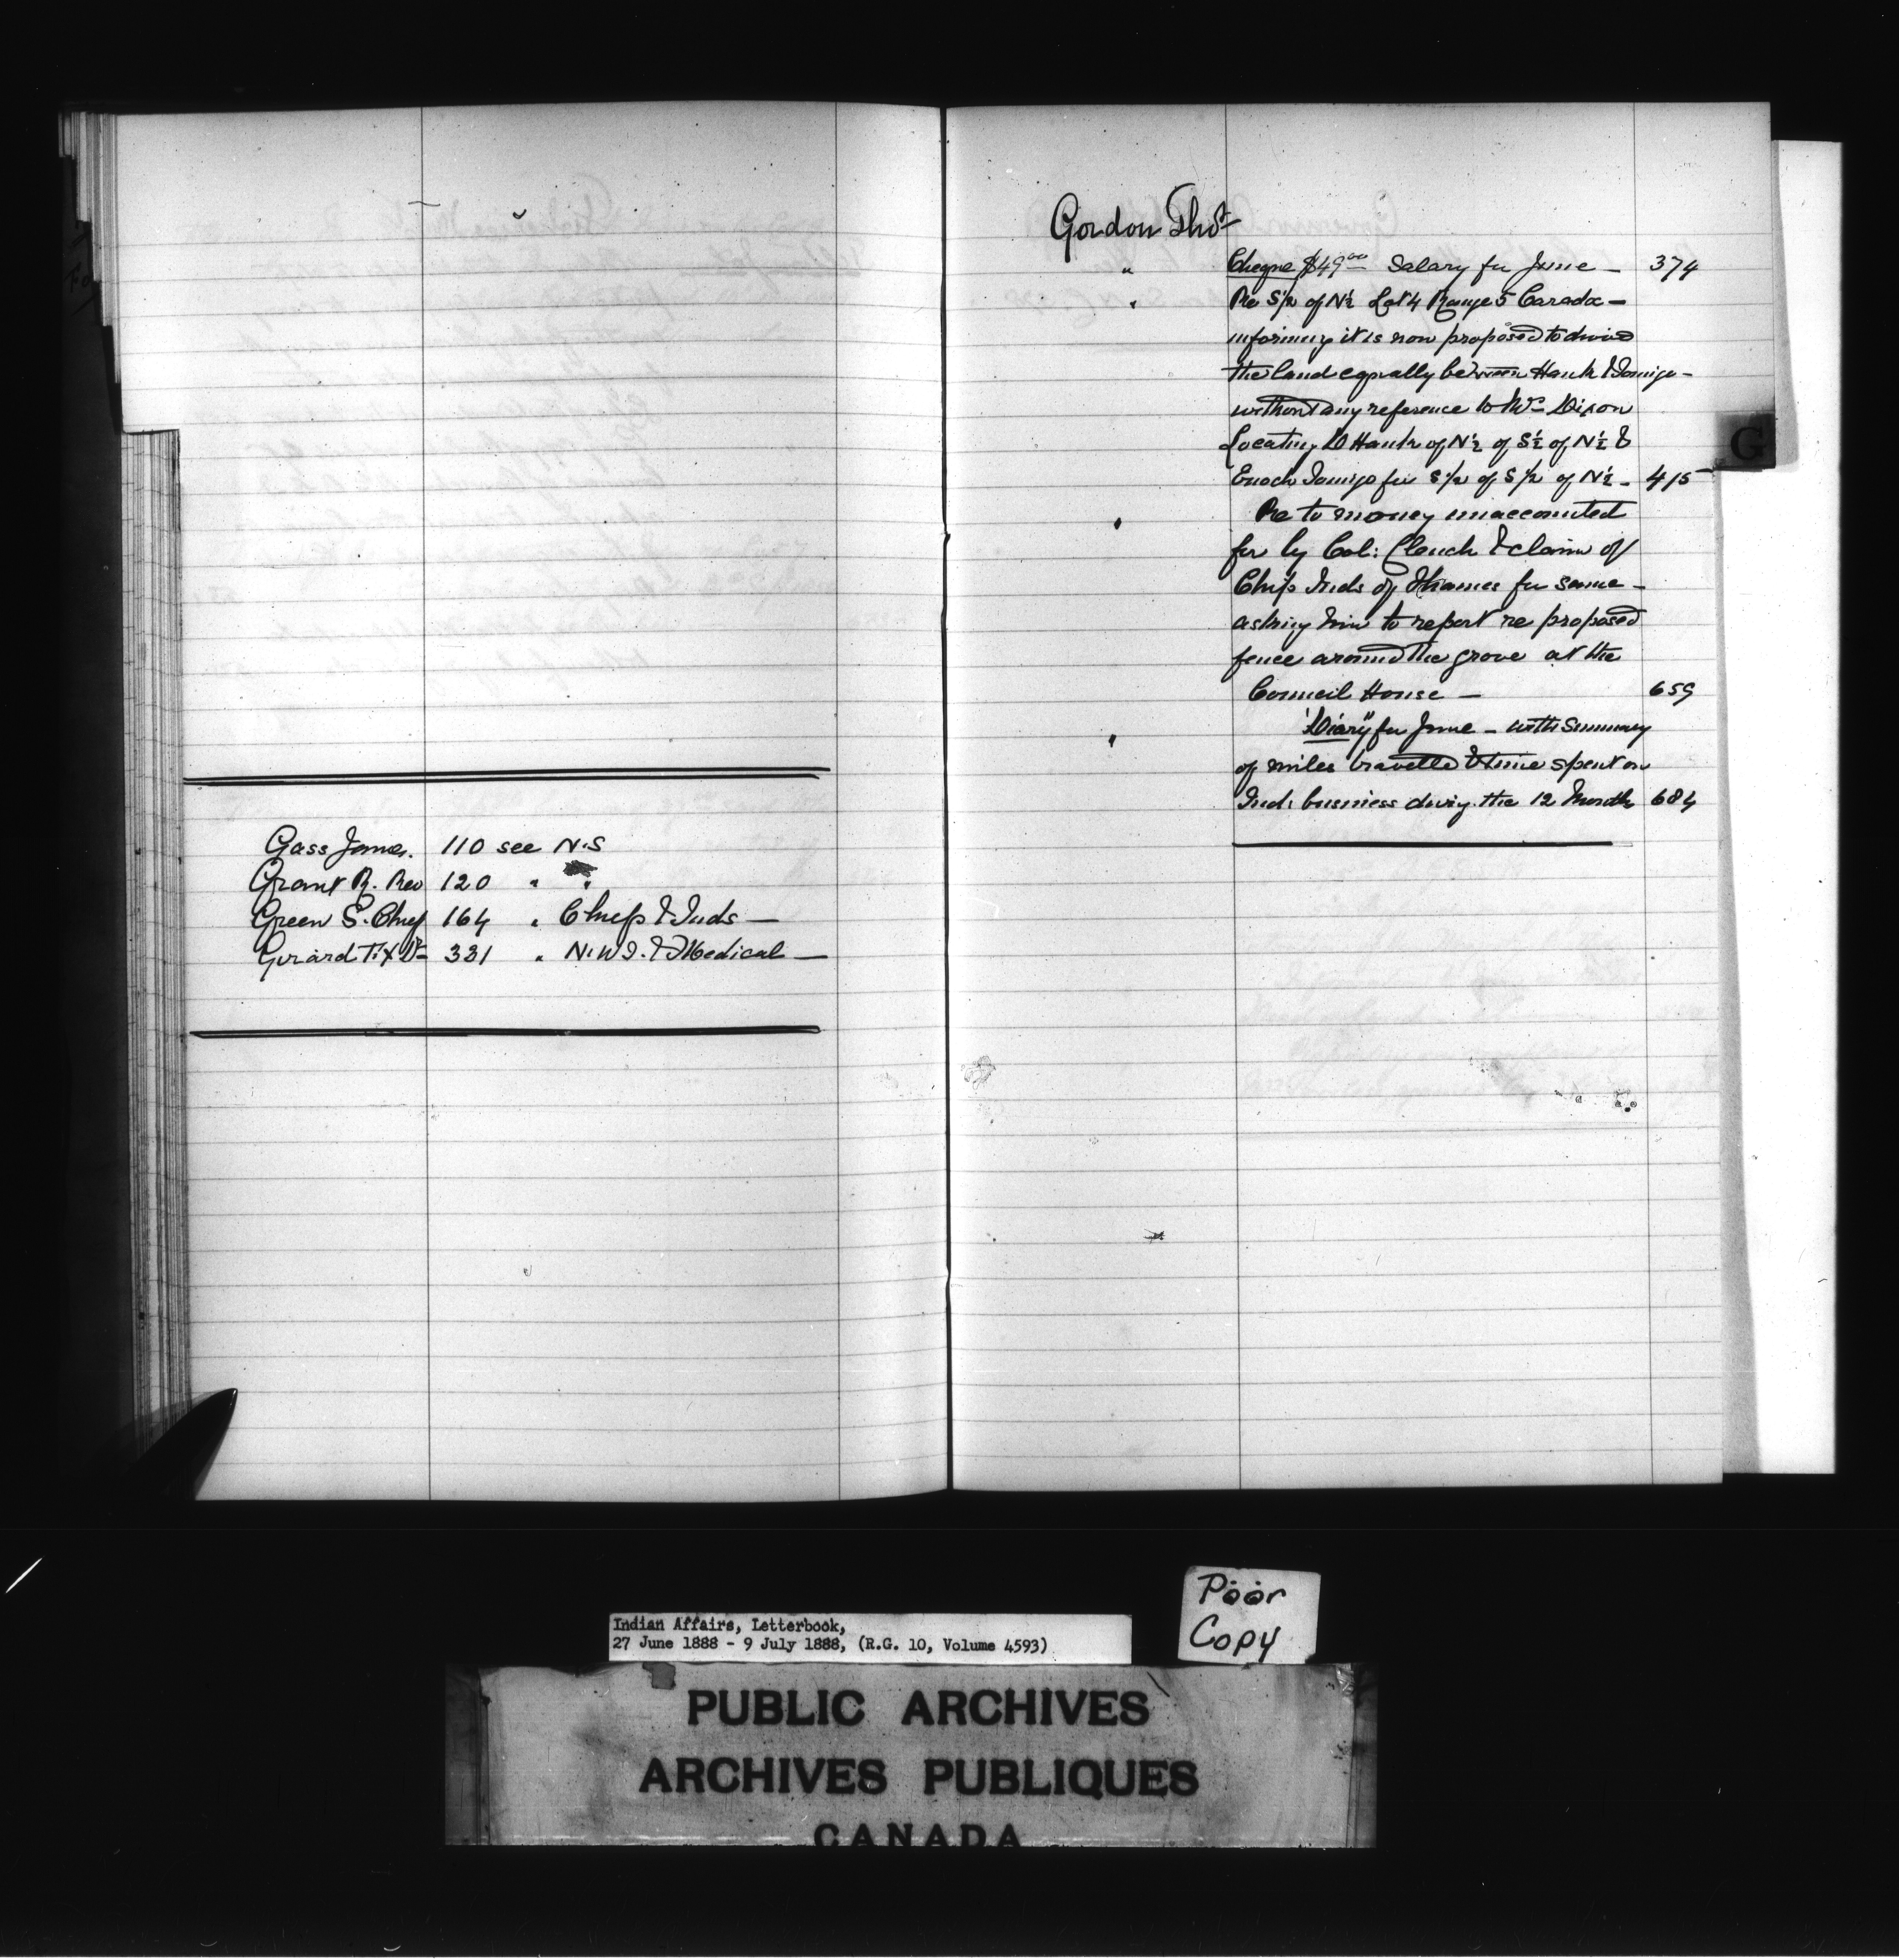 Gass James. 110 see N.S
Grant R. Rev 120 " "
Green S. Chief 164 " Chips & Inds —
Girard F.X Dr 331 " N.W.T. & Medical —
Gordon Thos
" Cheque $49.00 Salary for June — 374
" Re S½ of N½ Lot 4 Range 5 Caradoc —
informing it is now proposed to divide
the land equally between Hank &
without any reference to Mr Dixon
Locating D Hank of N½ of S½ of N½ &
Enoch for S½ of S½ of N½ — 415
" Re to money unaccounted
for by Col: Clench & claim of
Chips Inds of Thames for same —
asking him to report re proposed
fence around the grove at the
Council House — 659
" "Diary" for June — with Summary
of miles travelled & time spent on
Inds business during the 12 Months 684
G
Indian Affairs, Letterbook,
27 June 1888 - 9 July 1888, (R.G. 10, Volume 4593)
Poor
Copy
PUBLIC ARCHIVES
ARCHIVES PUBLIQUES
CANADA